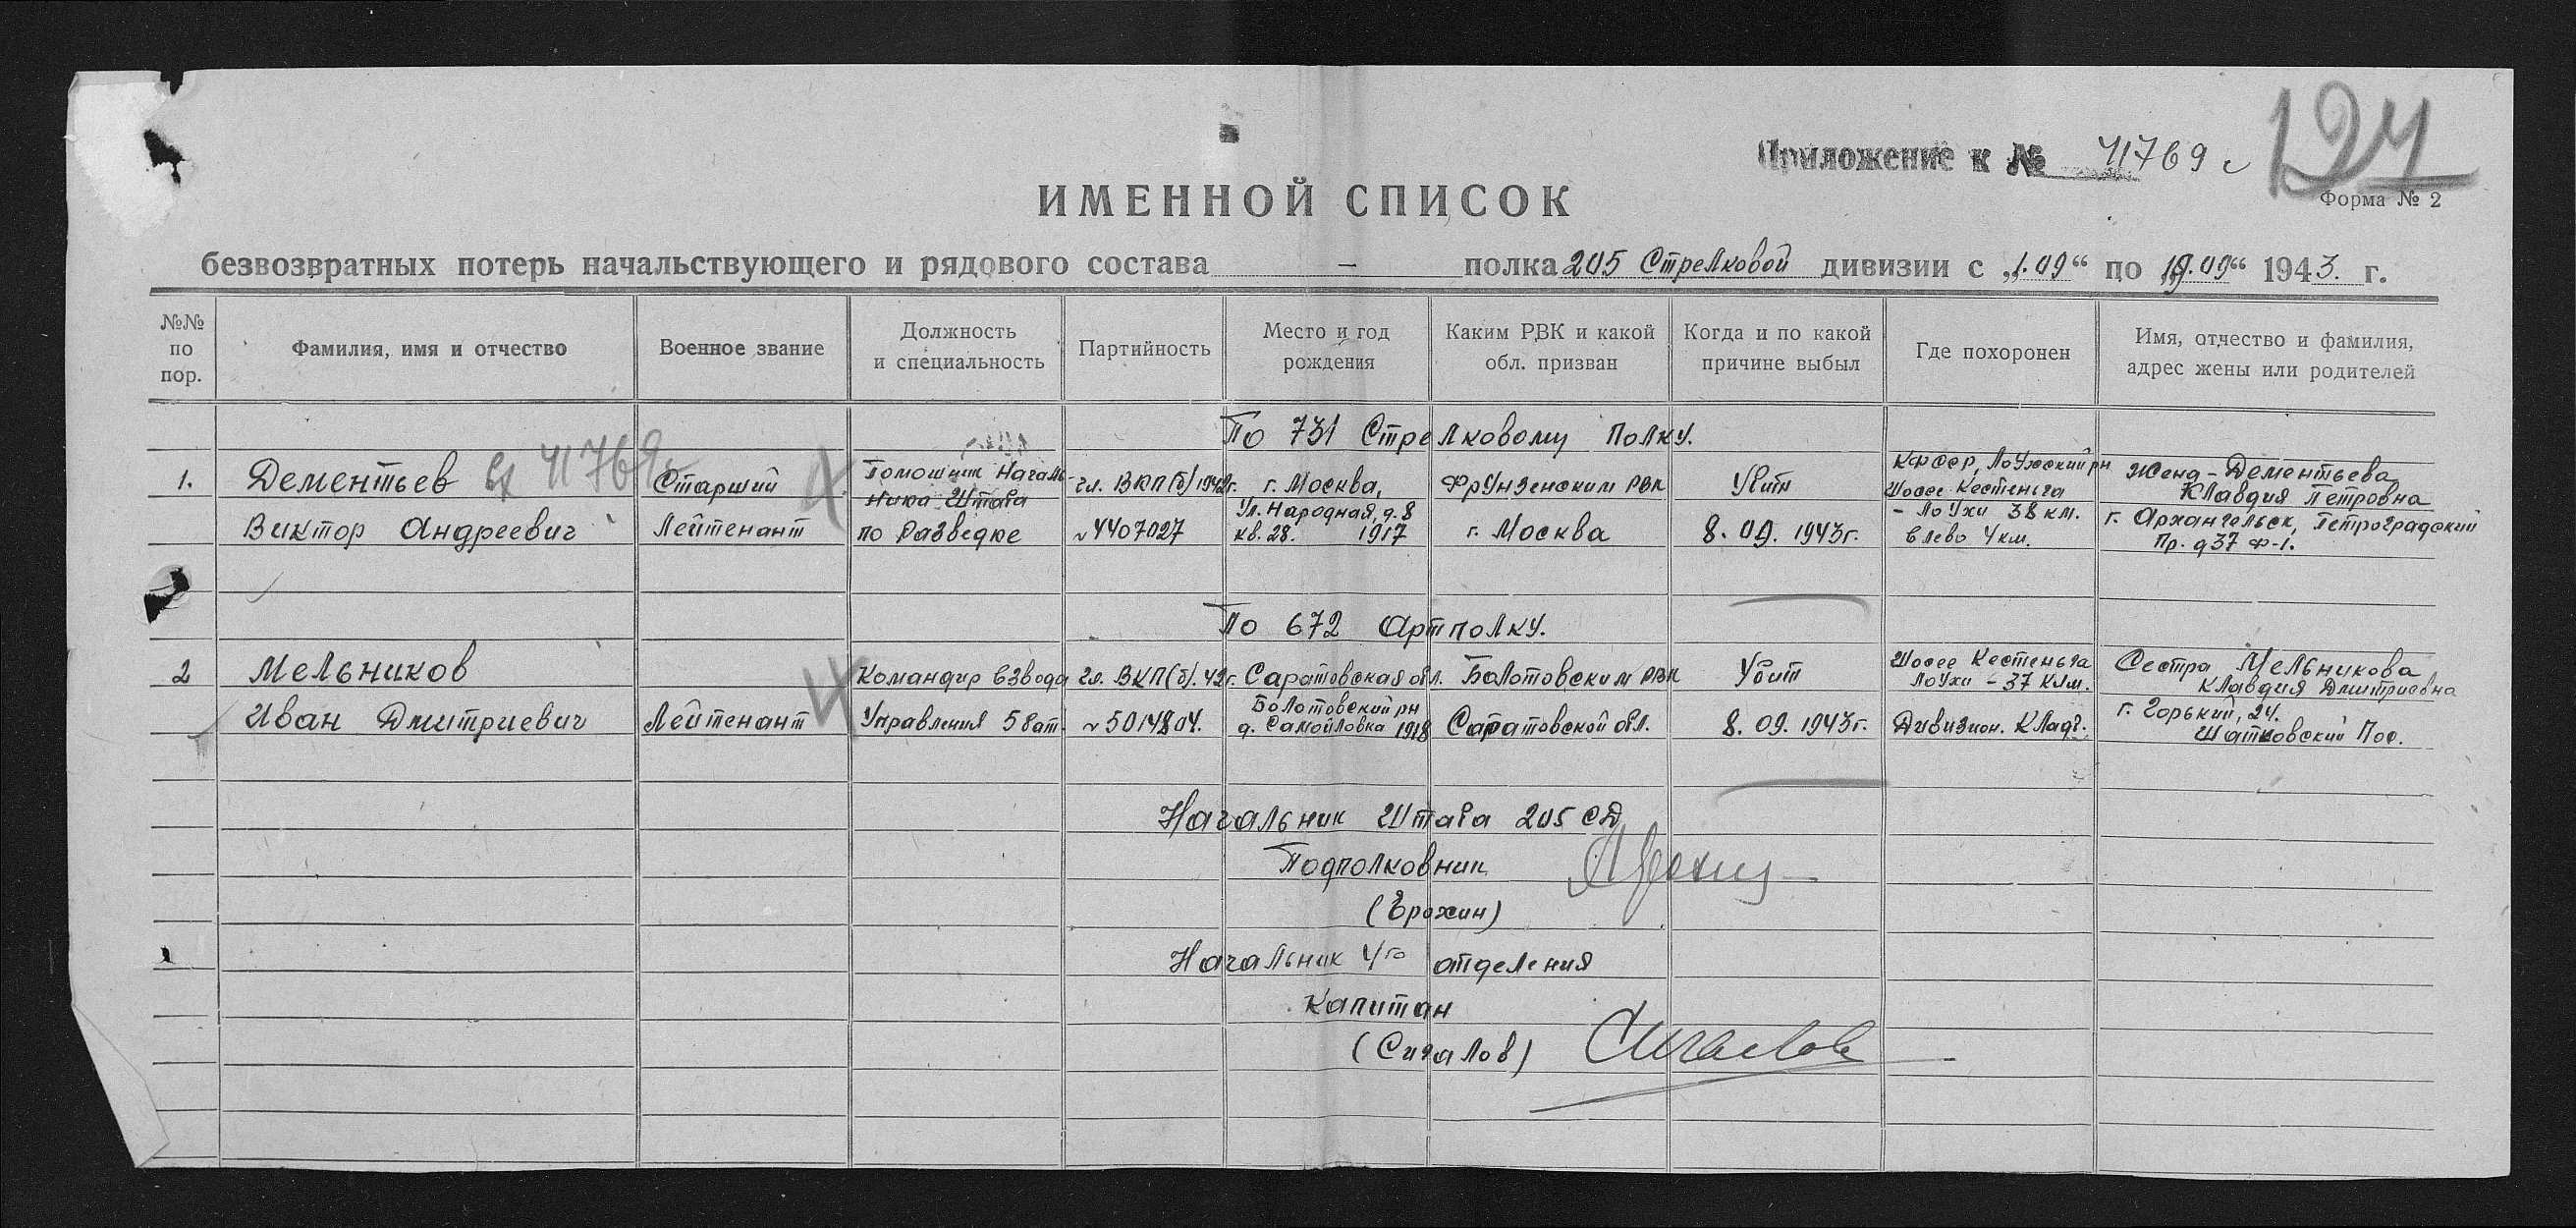 Приложение к № 41769 с
124
ИМЕННОЙ СПИСОК
Форма № 2
безвозвратных потерь начальствующего и рядового состава - полка 205 Стрелковой дивизии с „1.09“ по „19.09“ 1943 г.
№№ по пор.
Фамилия, имя и отчество
Военное звание
Должность и специальность
Партийность
Место и год рождения
Каким РВК и какой обл. призван
Когда и по какой причине выбыл
Где похоронен
Имя, отчество и фамилия, адрес жены или родителей
По 731 Стрелковому Полку.
1.
Дементьев
вх 41769с
Виктор Андреевич
Старший
Лейтенант
Помошник Началь-
ника Штаба
по Разведке
чл. ВКП(б) 1942г.
№4407027
г. Москва,
Ул. Народная, д. 8
кв. 28. 1917
Фрунзенским РВК
г. Москва
Убит
8. 09. 1943г.
КФССР, Лоухский рн
Шоссе Кестеньга
- Лоухи 38 км.
влево 4 км.
Жена - Дементьева
Клавдия Петровна
г. Архангельск, Петроградский
Пр. д 37 Ф-1.
По 672 Артполку.
2
Мельников
Иван Дмитриевич
Лейтенант
Командир взвода
Управления 5 бат.
чл. ВКП(б). 42г.
№5014804.
Саратовская обл.
Болотовский рн
д. Самойловка 1918
Болотовским РВК
Саратовской обл.
Убит
8. 09. 1943г.
Шоссе Кестеньга
Лоухи - 37 клм.
Дивизион. Кладб.
Сестра Мельникова
Клавдия Дмитриевна
г. Горький, 24.
Шатковский Пос.
Начальник Штаба 205 СД
Подполковник
(Ерохин)
Начальник 4го отделения
Капитан
(Сигалов)
Сигалов